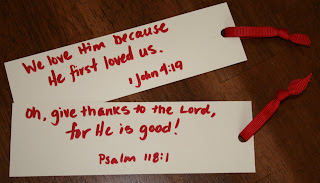 We love Him because
He first loved us.
1 John 4:19
Oh, give thanks to the Lord,
for He is good!
Psalm 118:1